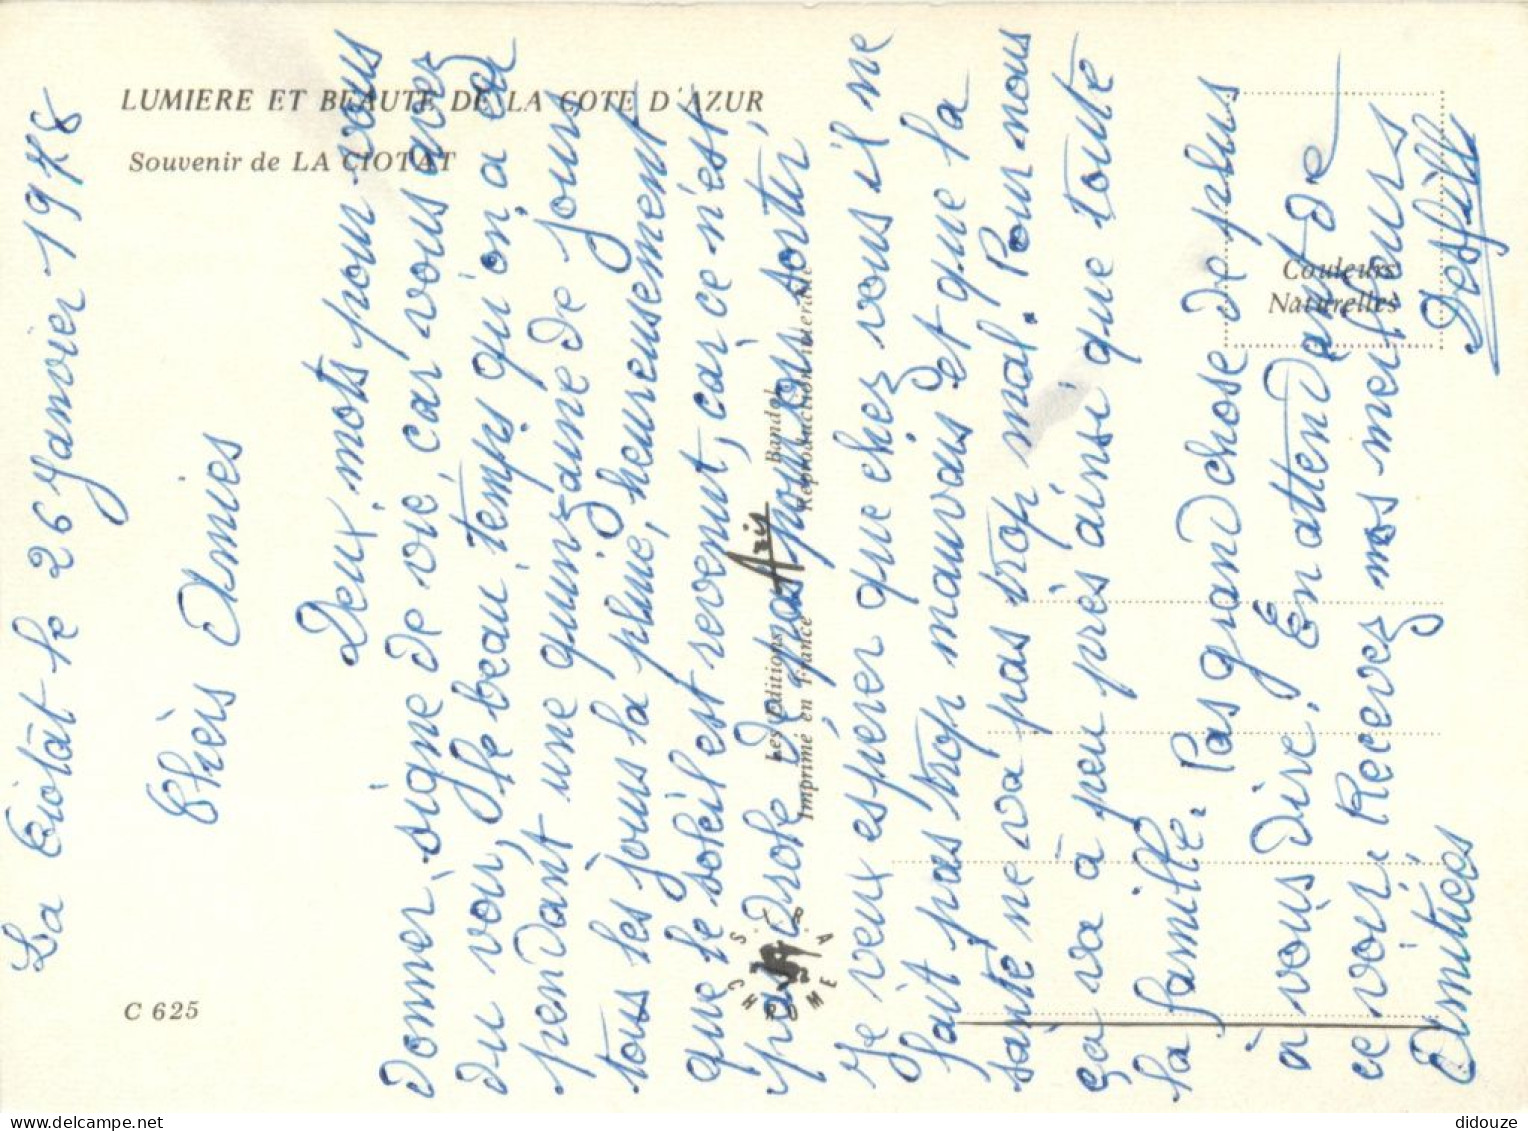 LUMIERE ET BEAUTE DE LA COTE D'AZUR
Souvenir de LA CIOTAT
Couleurs
Naturelles
Les Editions Aris Bandol
Imprimé en France Reproduction interdite
S.I.R.A.
CHROME
C 625
La Ciotât le 26 Janvier 1978
Chèrs Amies
Deux mots pour vous
donner signe de vie, car vous avez
du voir, le beau temps qu'on a eu
pendant une quinzaine de jours
tous les jours la pluie, heureusement
que le soleil est revenut, car ce n'est
pas drole de pas pouvoir sortir,
Je veux espérer que chez vous il ne
fait pas trop mauvais et que la
santé ne va pas trop mal. Pour nous
ça va à peu près ainsi que toute
la famille. Pas grand chose de plus
à vous dire, En attendant de
ce voir. Recevez nos meilleurs
Amitiés